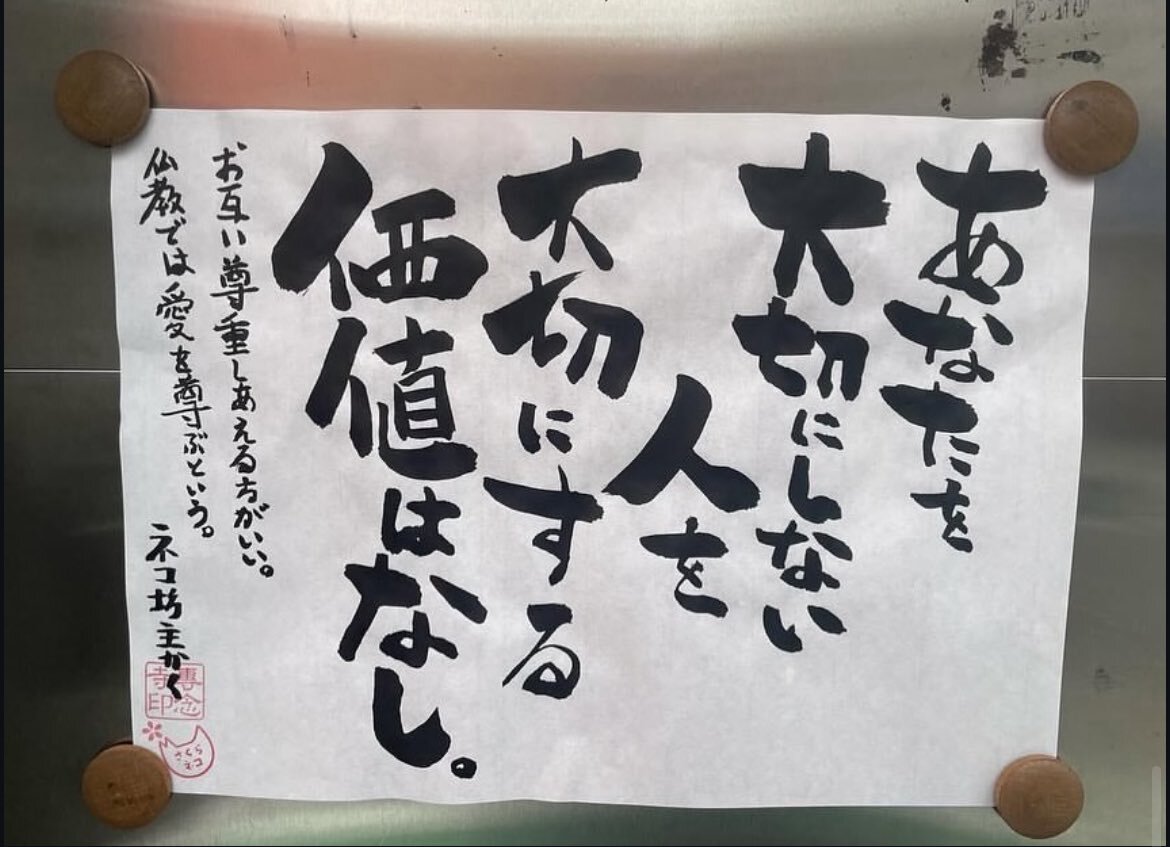 あなたを
大切にしない
人を
大切にする
価値はなし。
お互い尊重しあえる方がいい。
仏教では愛を尊ぶという。
ネコ坊主かく
専念
寺印
さくら
ネコ